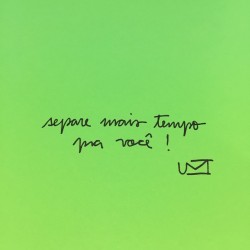 separe mais tempo
pra você !